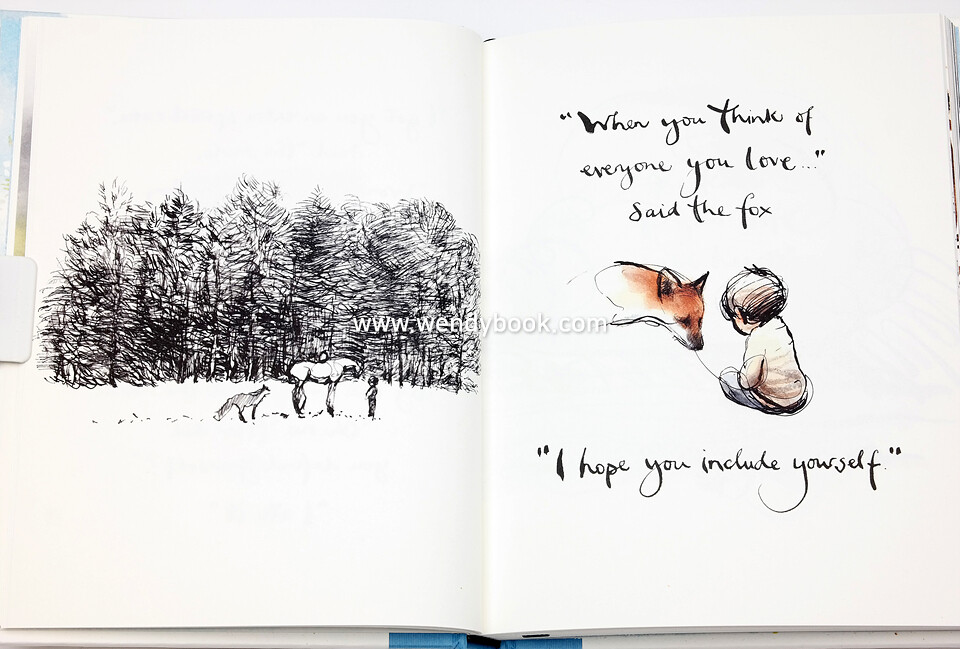 "When you think of
everyone you love..."
said the fox
www.wendybook.com
"I hope you include yourself."